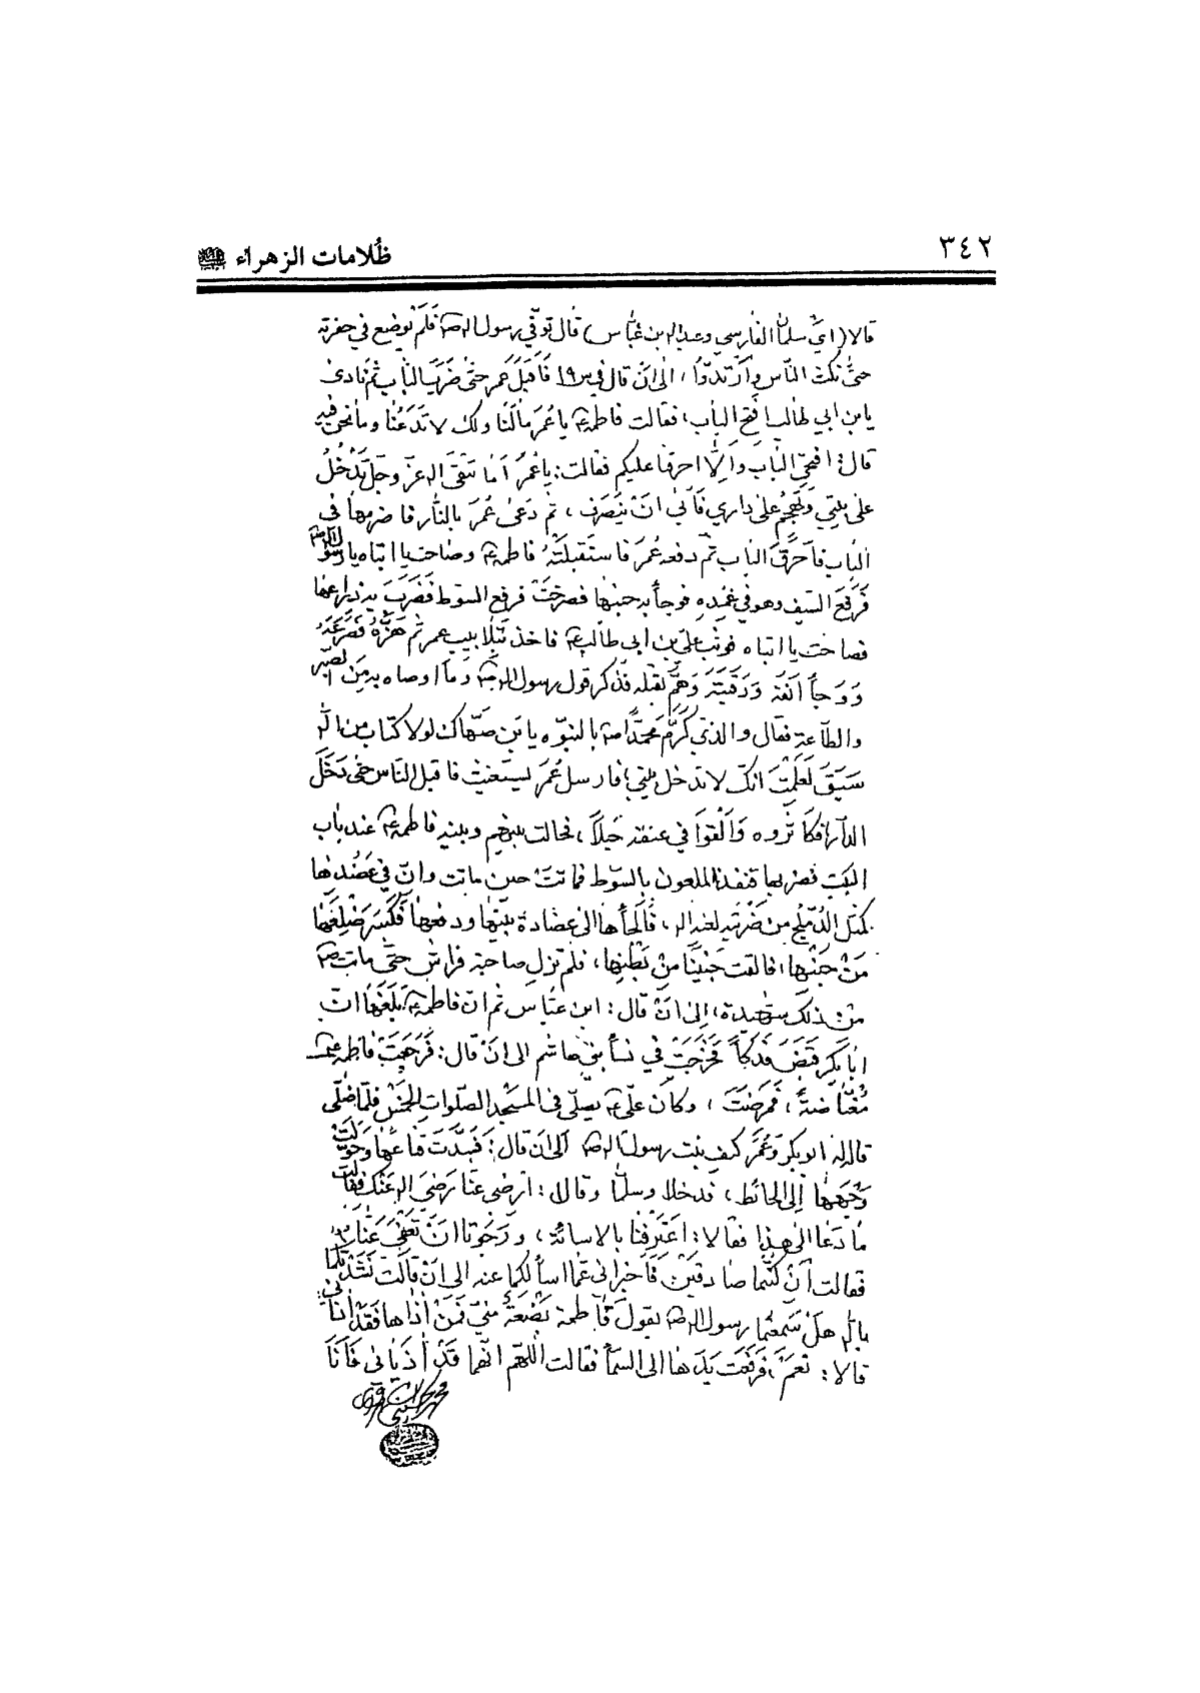 ٣٤٢
ظُلامات الزهراء
قالا (اي سلمان الفارسي وعبدالله بن عبّاس) قال توفّي رسول الله ص فَلَمْ يوضع في حفرته
حتّى نكث النّاس وارْتدّوا، الى انْ قال في ص ١٩ فَاقبَلَ عمر حتّى ضَرَبَ الباب ثمّ نادى
يابن ابي طالب افتح الباب، فقالت فاطمة ع يا عُمَر مالَنا ولك لا تَدَعُنا وما نحن فيه
قال: افتحي الباب والّا احرقنا عليكم فقالت: يا عُمَر اَما تتّقى الله عزّ وجلّ تدْخُل
على بيتي وتهجم على داري فابي انْ ينصرف، ثم دَعى عُمَر بالنّار فاضرمها في
الباب فاَحرَقَ الباب ثمّ دفعه عُمَر فاستقبلَتْهُ فاطمة ع وصاحت يا ابتاه يا رسول الله ص
فَرفَعَ السّيف وهو في غمدهِ فوجأ به جنبها فصرخَتْ فرفع السّوط فَضَرَبَ به ذراعها
فصاحت يا ابتاه فوثب عليّ بن ابى طالب ع فاخذ بتلابيب عمر ثم هَزَّهُ فَصَرَعَهُ
وَوَجأَ اَنفَهُ وَرَقَبَتَهُ وَهَمَّ بقتله فذكر قول رسول الله ص وما اوصاه به مِنَ الصبر
والطّاعة فقال والذي كَرَّمَ مُحمّداً ص بالنبوّه يابن صهّاك لولا كتاب من الله
سَبَقَ لَعَلِمْتَ انّك لا تدخل بيتي، فارسل عُمَر يستغيث فاقبل النّاس حتى دَخَلَ
الدّار فكاثروه وَاَلْقَوْا في عنقه حَبلاً، فحالت بينهم وبينه فاطمة ع عند باب
البيت فضربها قنفذ الملعون بالسّوط فماتَتْ حين ماتت وانّ في عَضُدها
كمثل الدُمْلُج من ضَرْبَته لعنه الله، فَاَلجأها الى عضادة بيتها ودفعها فَكَسَرَ ضلعَها
مِنْ جَنْبِها، فالقت جَنيناً مِنْ بَطْنِها، فلم تزل صاحبة فراش حتّى ماتت ص
من ذلك شهيدة، إلى انْ قال: ابن عبّاس ثم انّ فاطمة ع بَلَغَها انّ
ابابكر قَبَضَ فَدكاً فَخَرَجَتْ في نساء بني هاشم الى انْ قال: فَرَجَعَتْ فاطمة ع
مُغتاضَةً، فَمَرِضَتْ، وكان عليّ ع يصلّى في المسجد الصّلوات الخمس فلمّا صَلّى
قال له ابوبكر وَعُمَر كيف بنت رسول الله ص الى ان قال: فَشدَّتْ قناعَها وَحَوّلَتْ
وَجْهَها إلى الحائط، فدخلا وسلّما وقالا: ارضى عنّا رَضيَ الله عَنْك فقالت
ما دَعا الى هذا فقالا: اعتَرفنا بالاسائة، ورَجَونا انْ تعفى عَنّا
فقالت انْ كنتما صادقين فَاَخبرانى عمّا اسألكما عنه الى ان قالت نَشَدْتُكما
بالله هل سَمِعتُما رسول الله ص يقول فاطمة بَضْعَة منّي فَمَنْ اذاها فَقَدْ اذانى
قالا: نعَمْ، فَرَفَعَت يَدَها الى السّماء فقالت اللّهمّ انّهما قَدْ اذَيانى فَاَنَا